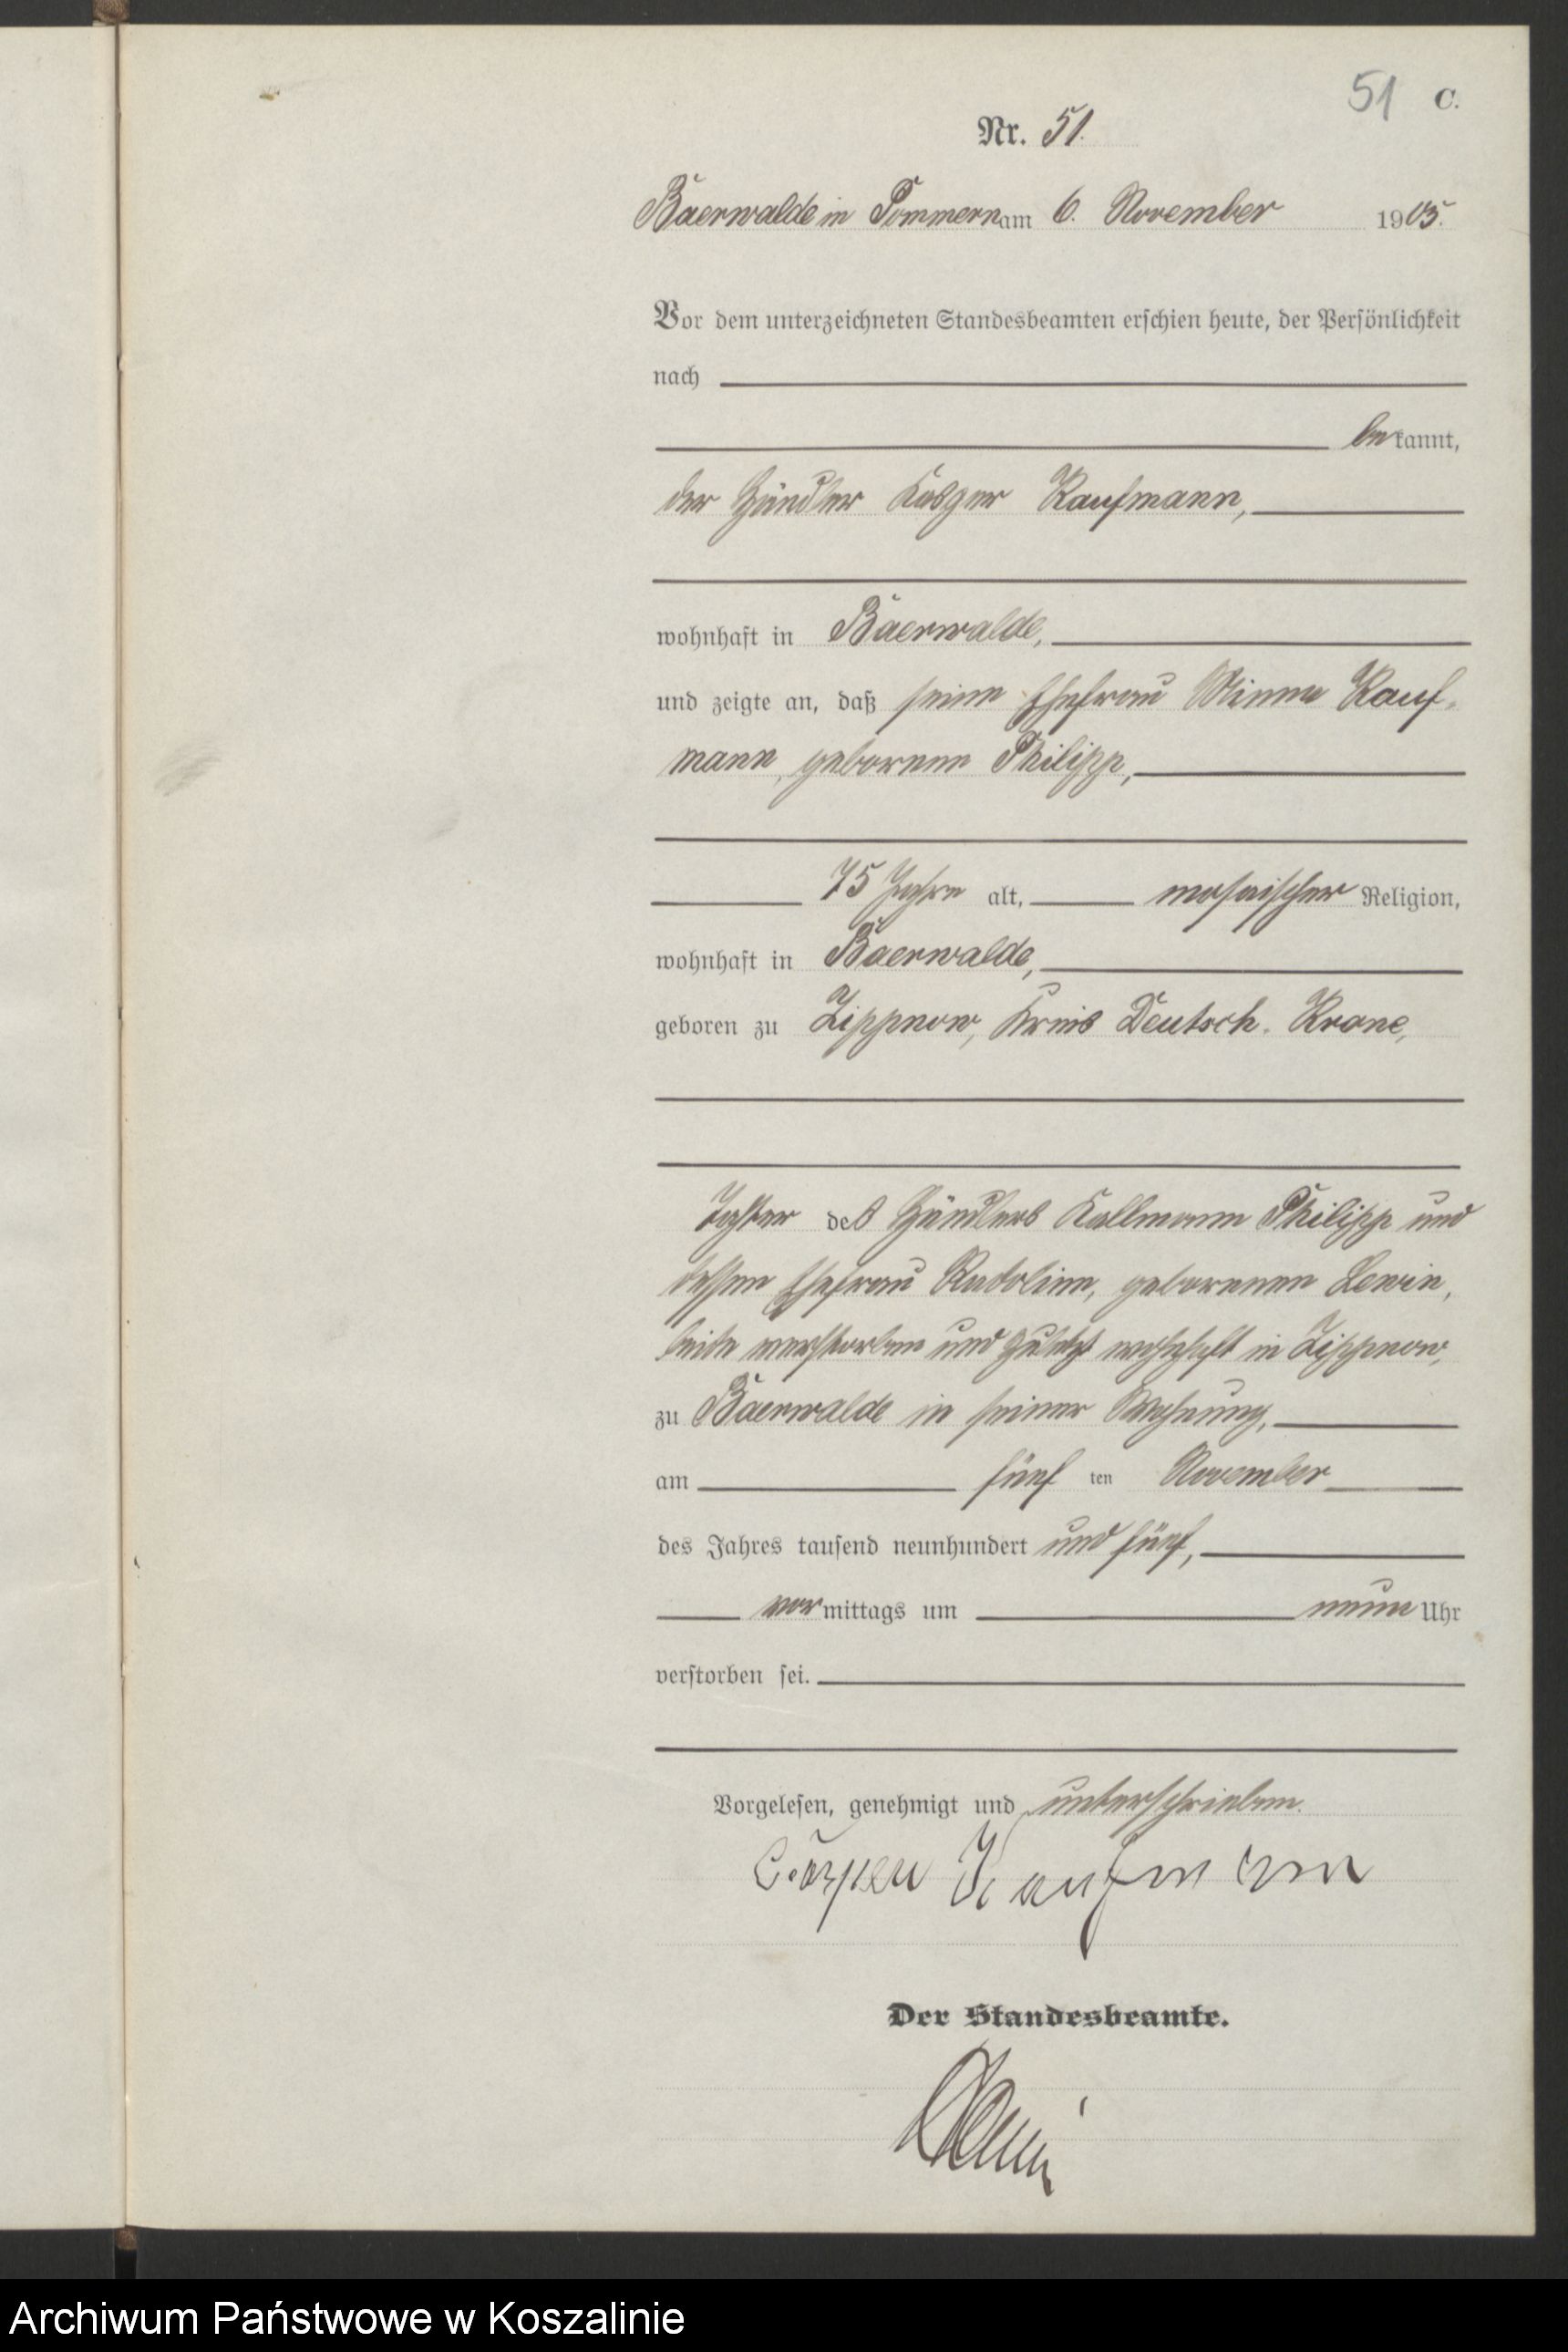 51 C.
Nr. 51.
Baerwalde in Pommern am 6. November 1905.
Vor dem unterzeichneten Standesbeamten erschien heute, der Persönlichkeit
nach
bekannt,
der Händler Kasper Kaufmann,
wohnhaft in Baerwalde,
und zeigte an, daß seine Ehefrau Minna Kauf-
mann, geborene Philipp,
75 Jahre alt, mosaischer Religion,
wohnhaft in Baerwalde,
geboren zu Zippnow, Kreis Deutsch-Krone,
Tochter des Händlers Kallmann Philipp und
dessen Ehefrau geborenen Lewin,
beide verstorben und zuletzt wohnhaft in Zippnow,
zu Baerwalde in seiner Wohnung,
am fünf ten November
des Jahres tausend neunhundert und fünf,
vormittags um neun Uhr
verstorben sei.
Vorgelesen, genehmigt und unterschrieben.
Kaufmann
Der Standesbeamte.
Archiwum Państwowe w Koszalinie